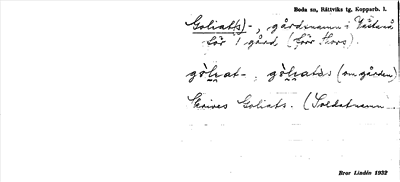 Boda sn, Rättviks tg. Kopparb. l.
Goliat(s)-, gårdsnamn i Västanå
för 1 gård (förr Smors).
gòli̯at-, gòli̯ats (om gården)
Skrives Goliats. (Soldatnamn
Bror Lindén 1932